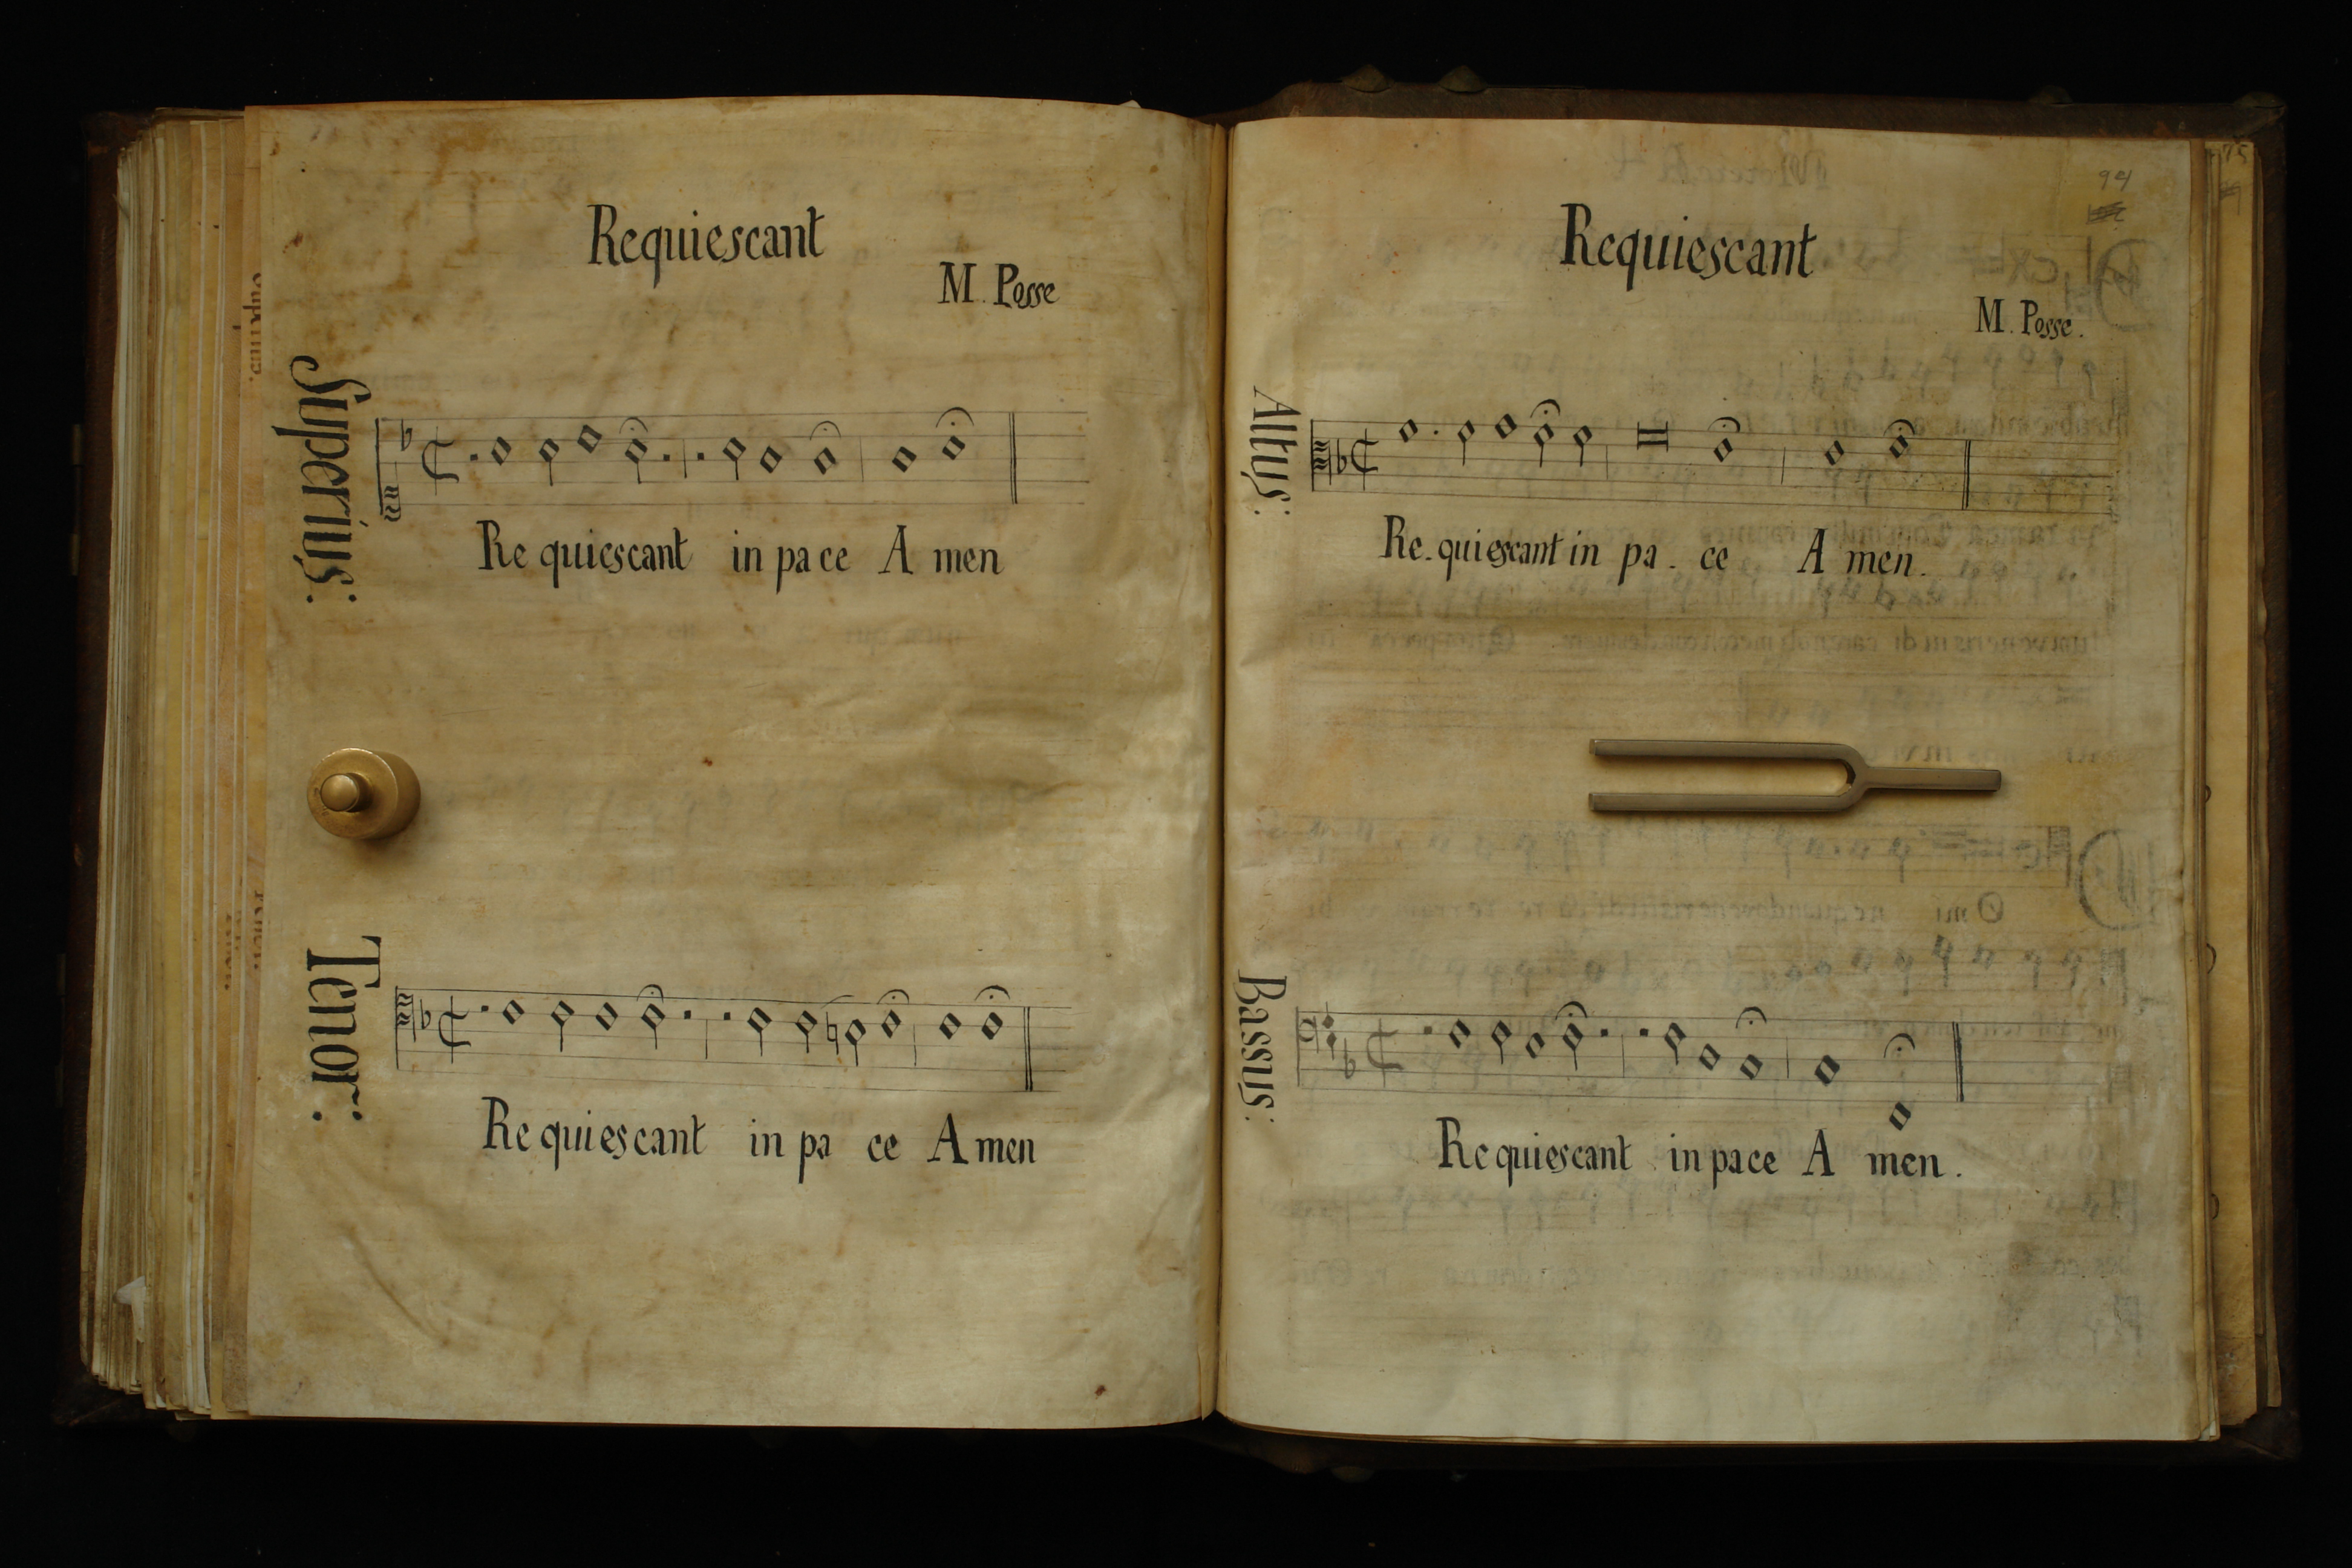 Requiescant
M. Posse
Superius:
Re quiescant in pa ce A men
Tenor:
Re quiescant in pa ce A men
94
Requiescant
M. Posse.
Altus:
Re. quiescant in pa. ce A men.
Bassus:
Re quiescant in pa ce A men.